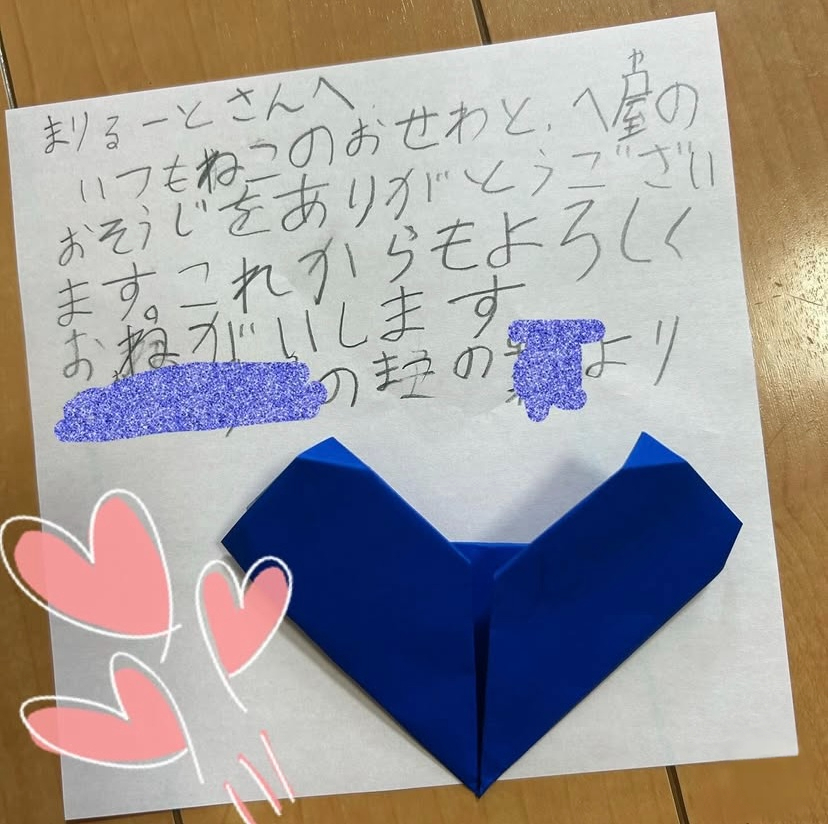 まりるーとさんへ
いつもねこのおせわと、へ屋の
おそうじをありがとうござい
ます。これからもよろしく
おねがいします
の の より